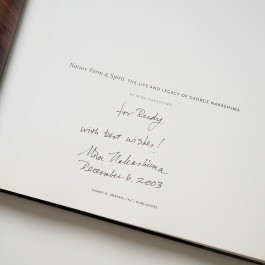 Nature Form & Spirit THE LIFE AND LEGACY OF GEORGE NAKASHIMA
BY MIRA NAKASHIMA
for Rudy
with best wishes!
Mira Nakashima
December 6, 2003
HARRY N. ABRAMS, INC., PUBLISHERS